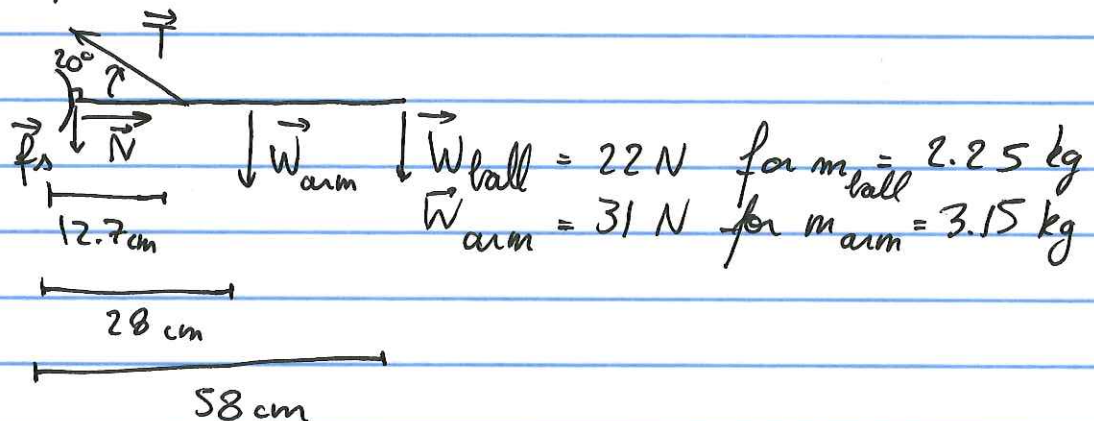 T
20°
fs N W arm W ball = 22 N for m ball = 2.25 kg
12.7 cm W arm = 31 N for m arm = 3.15 kg
28 cm
58 cm